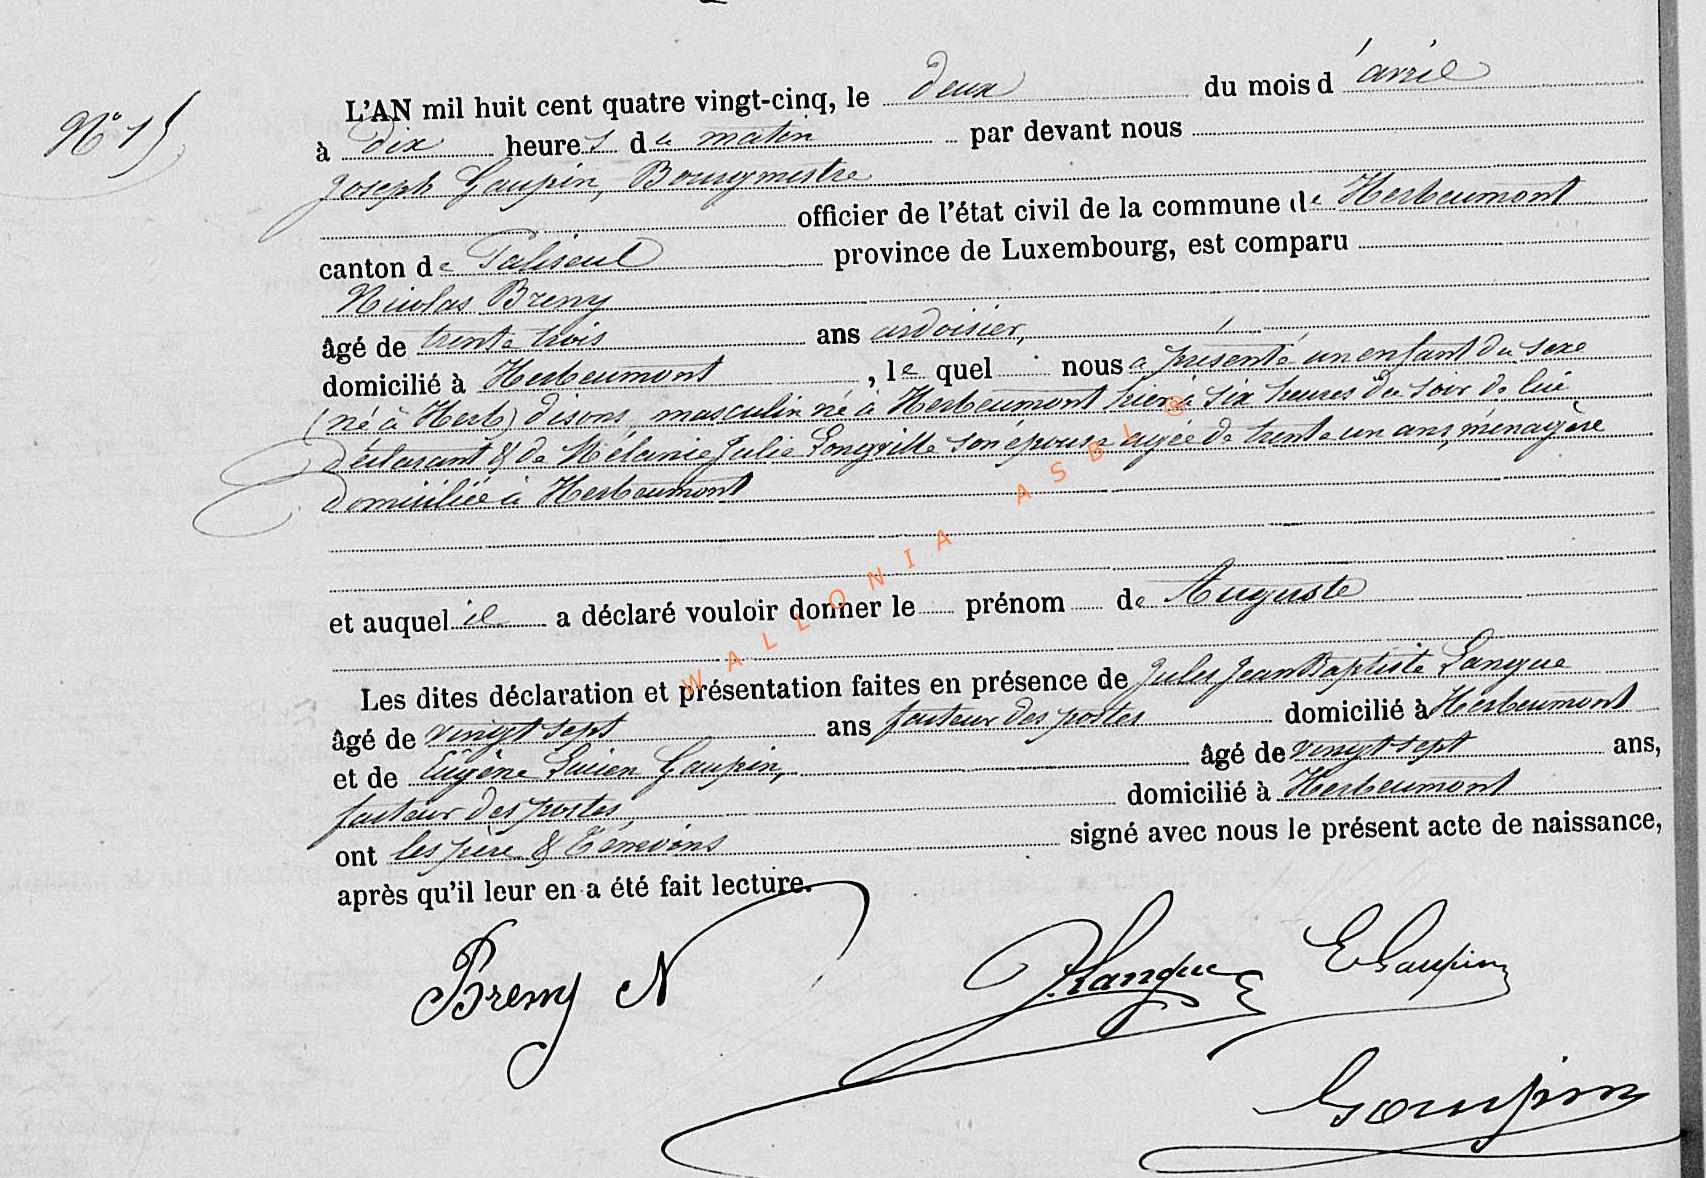 N° 15
L'AN mil huit cent quatre vingt-cinq, le deux du mois d'avril
à dix heures de matin par devant nous
Joseph Gaupin, Bourgmestre
officier de l'état civil de la commune de Herbeumont
canton de Paliseul province de Luxembourg, est comparu
Nicolas Breny
âgé de trente trois ans ardoisier,
domicilié à Herbeumont, le quel nous a présenté un enfant du sexe
(né à Herb) disons masculin né à Herbeumont hier à six heures du soir de lui
déclarant & de Mélanie Julie Longville son épouse agée de trente un ans, ménagère
domiciliée à Herbeumont
et auquel il a déclaré vouloir donner le prénom de Auguste
Les dites déclaration et présentation faites en présence de Jules Jean Baptiste Langue
âgé de vingt sept ans facteur des postes domicilié à Herbeumont
et de Eugène Lucien Gaupin, âgé de vingt sept ans,
facteur des postes, domicilié à Herbeumont
ont les père & témoins signé avec nous le présent acte de naissance,
après qu'il leur en a été fait lecture.
Breny N J. Langue E Gaupin
Gaupin
WALLONIA ASBL ®